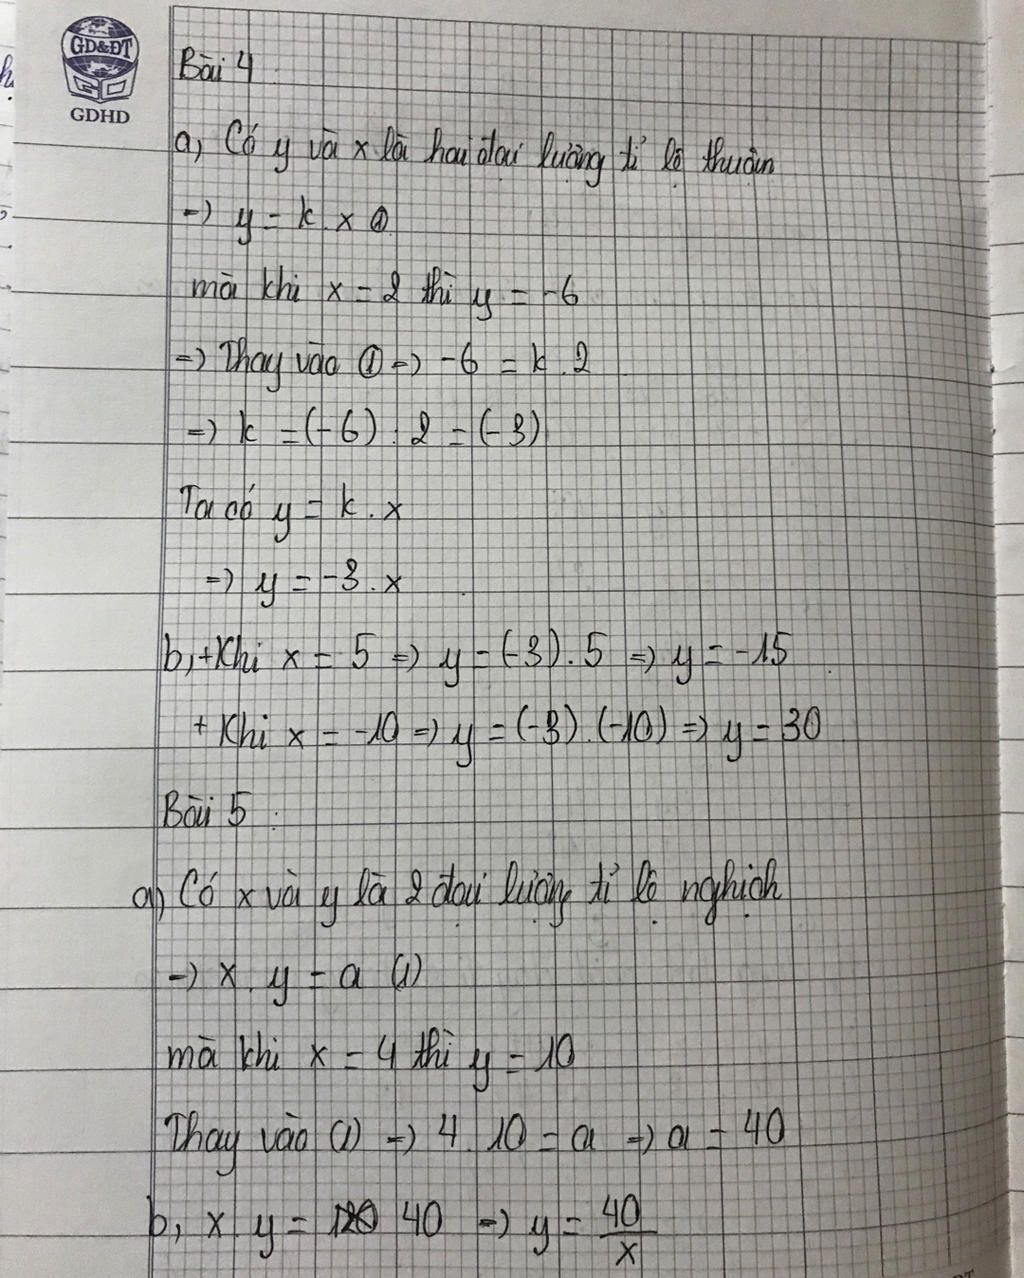 GD&ĐT
GDHD
Bài 4
a, Có y và x là hai đại lượng tỉ lệ thuận
=> y = k . x ①
mà khi x = 2 thì y = -6
=> Thay vào ① => -6 = k . 2
=> k = (-6) : 2 = (-3)
Ta có y = k . x
=> y = -3 . x
b, + Khi x = 5 => y = (-3) . 5 => y = -15
+ Khi x = -10 => y = (-3) . (-10) => y = 30
Bài 5 :
a) Có x và y là 2 đại lượng tỉ lệ nghịch
=> x . y = a (1)
mà khi x = 4 thì y = 10
Thay vào (1) => 4 . 10 = a => a = 40
b, x . y = 40 => y = 40/x